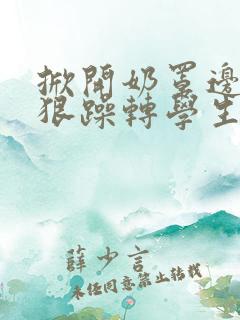 掀開奶罩邊
狠躁轉學生
薛少言
未经同意禁止转载